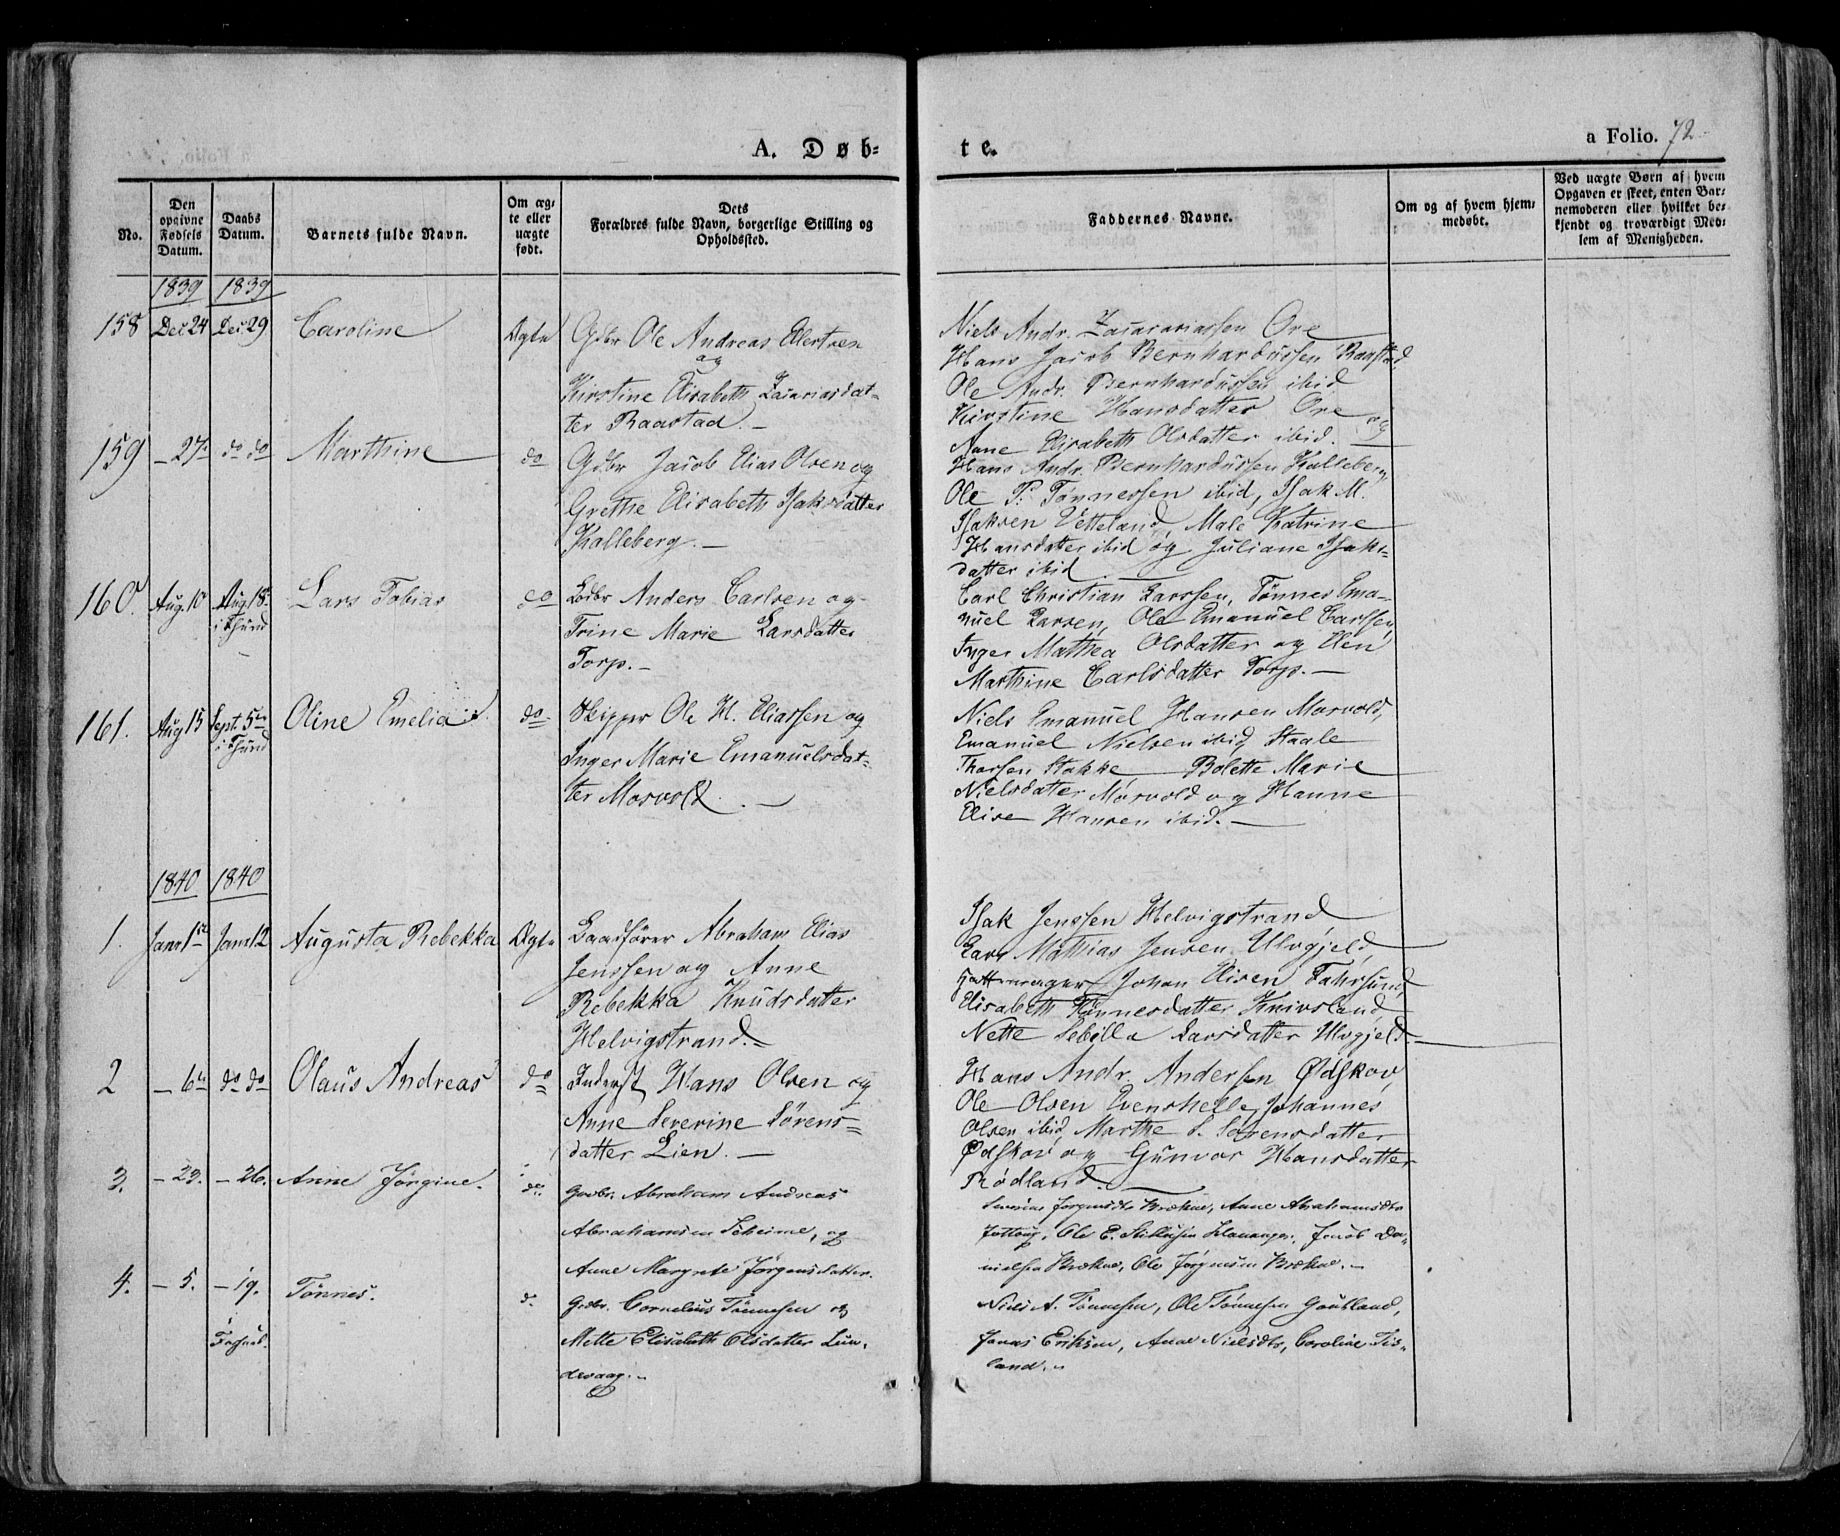 A. Døb=
te.
a Folio. 72
No.
Den opgivne Fødsels Datum.
Daabs Datum.
Barnets fulde Navn.
Om ægte eller uægte født.
Dets Forældres fulde Navn, borgerlige Stilling og Opholdssted.
Faddernes Navne.
Om og af hvem hjemmedøbt.
Ved uægte Børn af hvem Opgaven er skeet, enten Barnemoderen eller hvilket bekjendt og troværdigt Medlem af Menigheden.
1839 1839
158 Dec 24 Dec 29 Caroline Ægte Gdbr Ole Andreas Elertsen
og
Kirstine Elisabeth Zacariasdat=
ter Raastad. –
Niels Andr. Zacarariassen Ore
Hans Jacob Bernhardussen Raastad,
Ole Andr. Bernhardussen ibid
Kirstine Hansdatter Ore og
Anne Elisabeth Olsdatter ibid. –
159 – 27 do do Marthine do Gdbr Jacob Elias Olsen og
Grethe Elisabeth Isaksdatter
Kalleberg. –
Hans Andr. Bernhardussen Kalleberg
Ole P. Tønnessen ibid, Isak M.
Isaksen Vetteland, Male Katrine
Hansdatter ibid og Juliane Isaks=
datter ibid
160. Aug. 10 Aug 18 Lars Tobias do Ledbr Anders Carlsen og
i Hsund
Trine Marie Larsdatter
Torp. –
Carl Christian Larssen, Tønnes Ema=
nuel Larsen, Ole Emanuel Carlssen,
Inger Mathea Olsdatter og Elen
Marthine Carlsdatter Torp. –
161. Aug 15 Sept 5te Oline Emelia do Skipper Ole H. Eliassen og
i Hsund
Inger Marie Emanuelsdat=
ter Mosvold. –
Niels Emanuel Hansen Mosvold,
Emanuel Nielsen ibid, Staale
Thorsen Stakke, Bolette Marie
Nielsdatter Mosvold og Hanne
Elise Hansen ibid. –
1840 1840
1. Janr 1ste Janr 12 Augusta Rebekka Ægte Baadfører Abraham Elias
Jenssen og Anne
Rebekka Knudsdatter
Helvigstrand. =
Isak Jenssen Helvigstrand
Lars Mathias Jensen Ulvgjeld
Hattemager Johan Elisen Fahrsund,
Elisabeth Tønnesdatter Knivsland
Nette Sebilla Larsdatter Ulvgjeld
2 – 6te do do Olaus Andreas do Inderst Hans Olsen og
Anne Severine Sørens=
datter Lien. –
Hans Andr. Andersen Ødskov,
Ole Olsen Evenshelle, Johannes
Olsen ibid, Marthe S. Sørensdatter
Ødskov og Gunvor Hansdatter
Rødland.
3. – 23. – 26. Anne Jørgine. do. Gdbr. Abraham Andreas
Abrahamsen Scheime, og
Anne Margrete Jørgensdatter.
Jørgensdtr Brækne, Anne Abrahamsdtr
Ole E. Jacob Da=
nielsen Brækne, Ole Jørgensen Brækne. –
4. – 5. – 19. Tønnes. d. Gdbr. Cornelius Tønnesen og
Mette Elisabeth Olsdatter Lun=
devaag. –
Niels A. Tønnesen, Ole Tønnesen
Jonas Eriksen, Anne Nielsdtr, Caroline
land. –